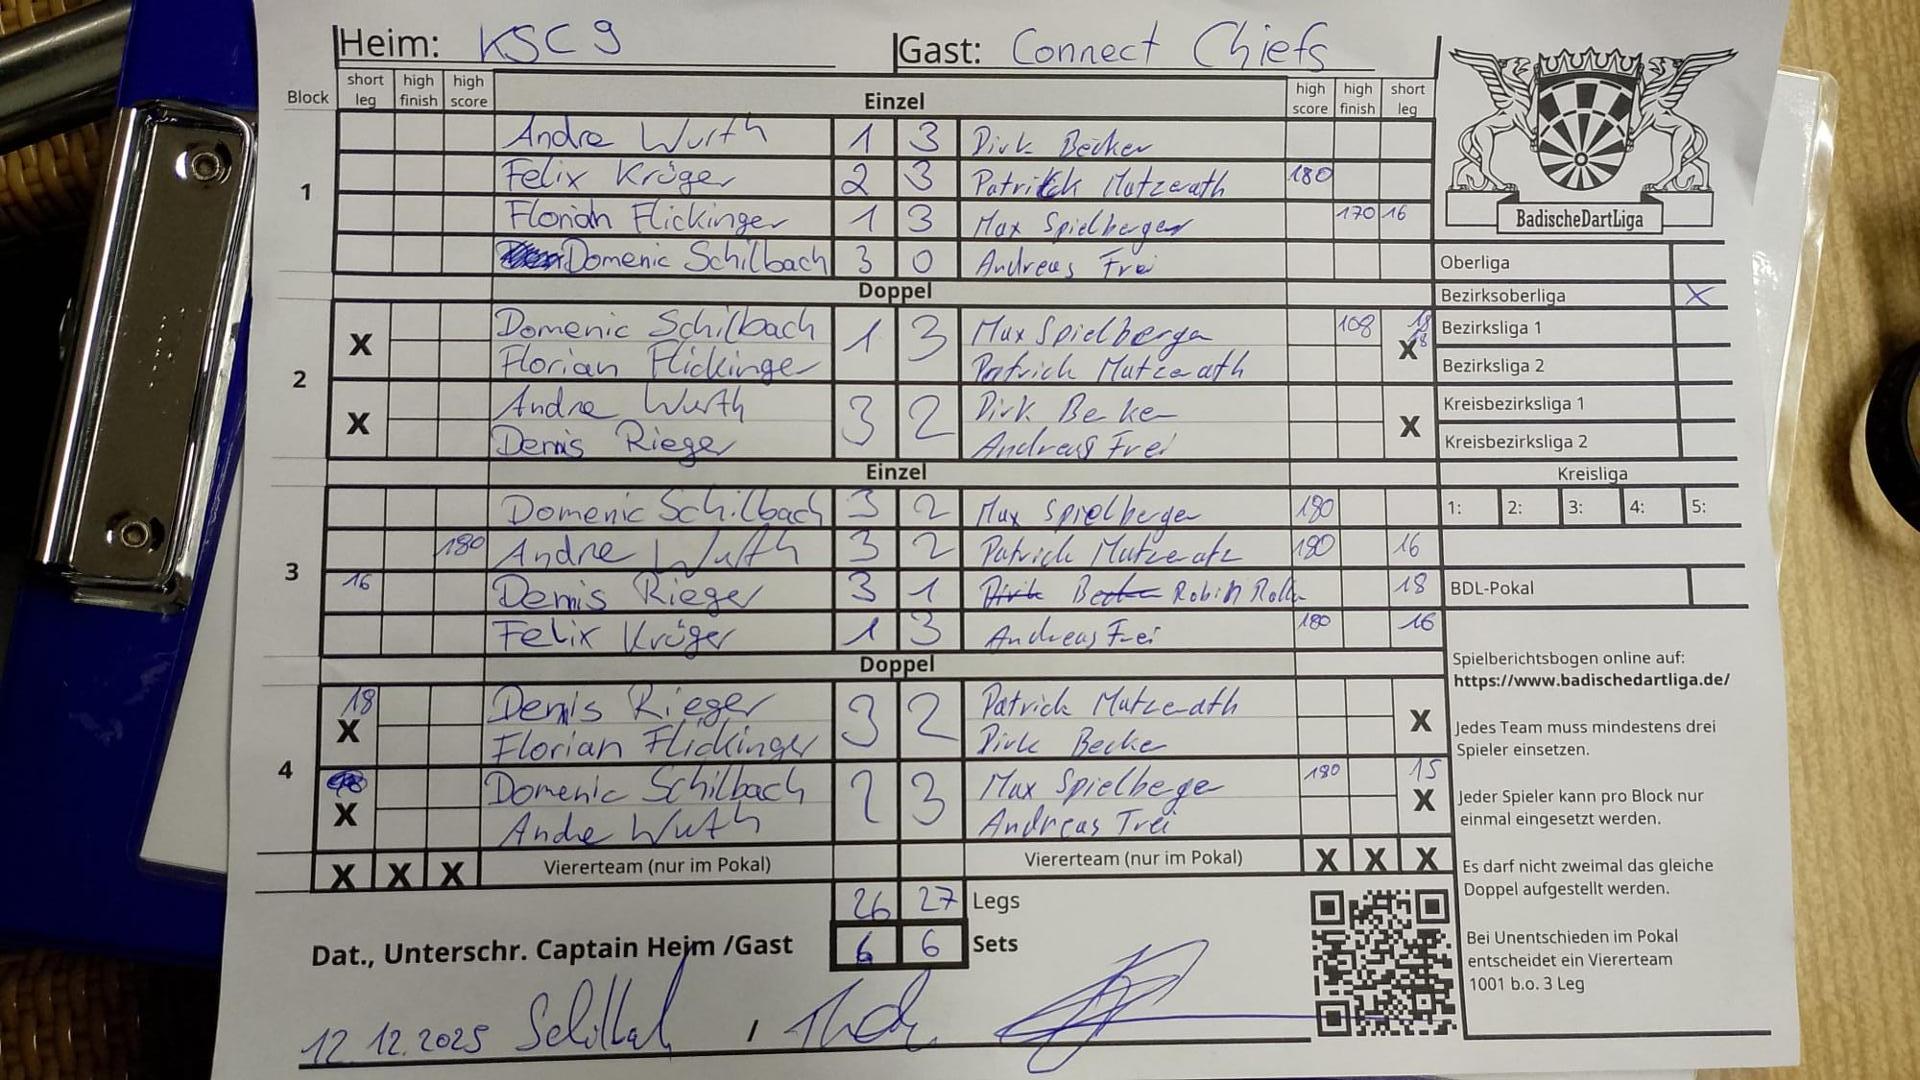 Heim: KSC 9 Gast: Connect Chiefs
Block short leg high finish high score Einzel high score high finish short leg
1
Andre Wurth 1 3 Dirk Becker
Felix Kröger 2 3 Patrick Mutzerath 180
Florian Flickinger 1 3 Max Spielberger 170 16
Domenic Schilbach 3 0 Andreas Frei
Doppel
2
X Domenic Schilbach 1 3 Max Spielberger 108 18 18 X
Florian Flickinger Patrick Mutzerath
X Andre Wurth 3 2 Dirk Becker X
Denis Rieger Andreas Frei
Einzel
3
Domenic Schilbach 3 2 Max Spielberger 180
180 Andre Wurth 3 2 Patrick Mutzerath 180 16
16 Denis Rieger 3 1 Dirk Becker Robin 18
Felix Kröger 1 3 Andreas Frei 180 16
Doppel
4
18 X Denis Rieger 3 2 Patrick Mutzerath X
Florian Flickinger Dirk Becker
X Domenic Schilbach 2 3 Max Spielberger 180 15 X
Andre Wurth Andreas Frei
X X X Vierерteam (nur im Pokal) Viererteam (nur im Pokal) X X X
26 27 Legs
6 6 Sets
Dat., Unterschr. Captain Heim /Gast
12.12.2025 Schilbach /
BadischeDartLiga
Oberliga
Bezirksoberliga X
Bezirksliga 1
Bezirksliga 2
Kreisbezirksliga 1
Kreisbezirksliga 2
Kreisliga
1: 2: 3: 4: 5:
BDL-Pokal
Spielberichtsbogen online auf:
https://www.badischedartliga.de/
Jedes Team muss mindestens drei
Spieler einsetzen.
Jeder Spieler kann pro Block nur
einmal eingesetzt werden.
Es darf nicht zweimal das gleiche
Doppel aufgestellt werden.
Bei Unentschieden im Pokal
entscheidet ein Viererteam
1001 b.o. 3 Leg